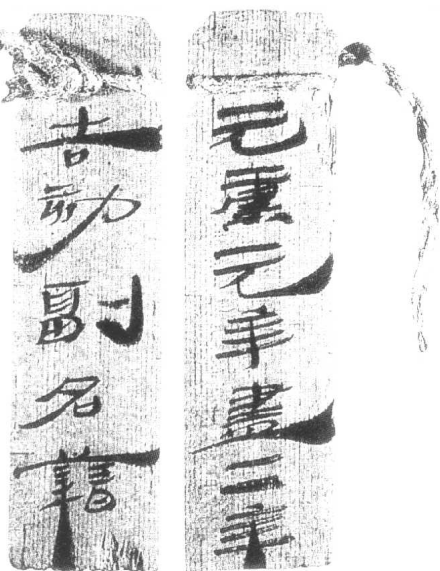 元康元年盡二年
告劾副名籍